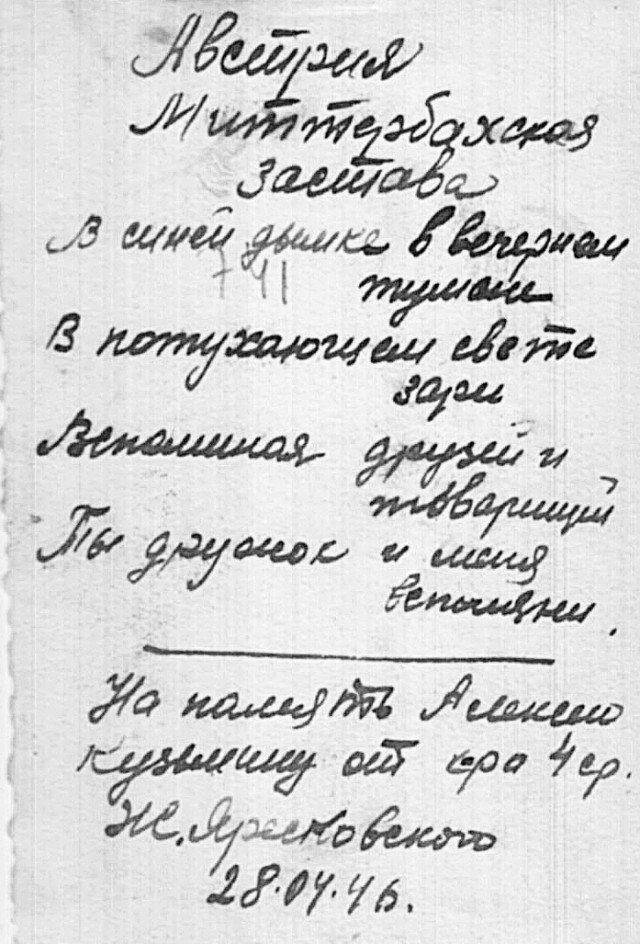 Австрия
Миттербахская
застава
В синей дымке в вечернем
тумане
В потухающем свете
зари
Вспоминая друзей и
товарищей
Ты дружок и меня
вспомяни.
На память Алексею
Кузьмину от
28.04.46.